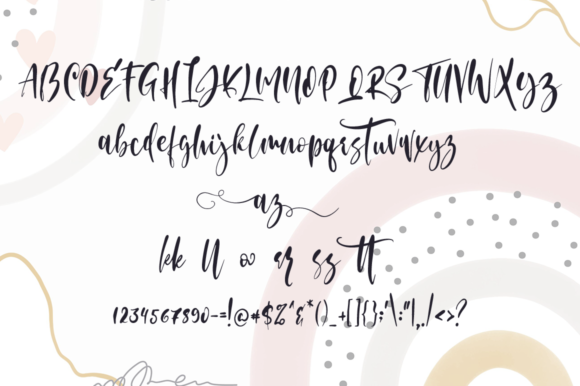 ABCDEFGHIJKLMNOPQRSTUVWXYZ
abcdefghijklmnopqrstuvwxyz
az
kk ll oo ar sz tt
1234567890-=!@#$%^&*()_+[]{};'\:"|,./<>?